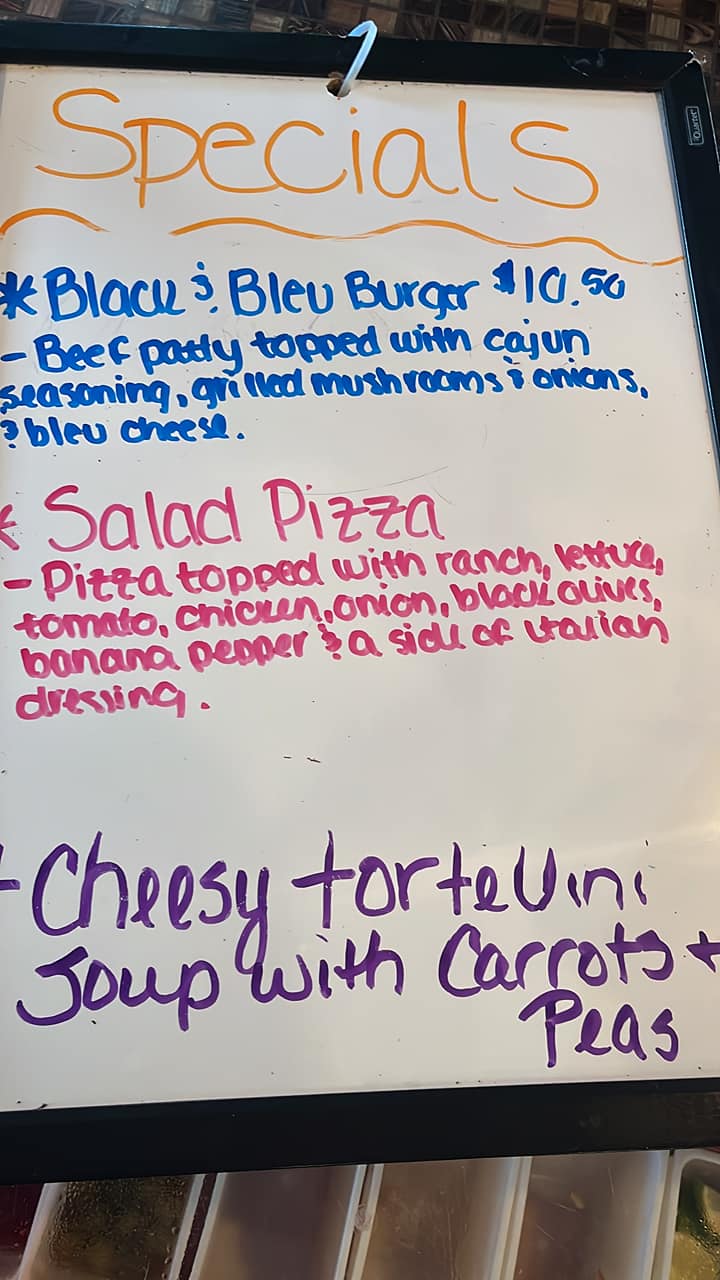 Specials
* Black & Bleu Burger $10.50
- Beef patty topped with cajun
seasoning, grilled mushrooms & onions,
& bleu cheese.
* Salad Pizza
- Pizza topped with ranch, lettuce,
tomato, chicken, onion, black olives,
banana pepper & a side of italian
dressing.
Cheesy tortellini
Soup with Carrots +
Peas
Quartet